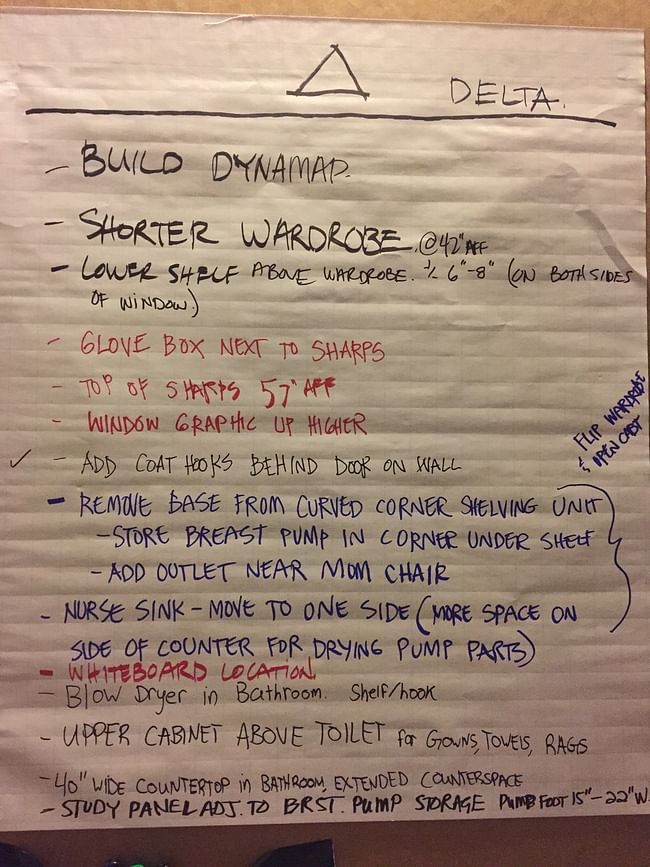 Δ DELTA.
- BUILD DYNAMAP.
- SHORTER WARDROBE @42" AFF
- LOWER SHELF ABOVE WARDROBE. 6"-8" (ON BOTH SIDES
OF WINDOW.)
- GLOVE BOX NEXT TO SHARPS
- TOP OF SHARPS 57" AFF
- WINDOW GRAPHIC UP HIGHER
FLIP WARDROBE
& OPEN CABT
✓ - ADD COAT HOOKS BEHIND DOOR ON WALL
- REMOVE BASE FROM CURVED CORNER SHELVING UNIT
- STORE BREAST PUMP IN CORNER UNDER SHELF
- ADD OUTLET NEAR MOM CHAIR
- NURSE SINK - MOVE TO ONE SIDE (MORE SPACE ON
SIDE OF COUNTER FOR DRYING PUMP PARTS)
- WHITEBOARD LOCATION
- Blow Dryer in Bathroom. Shelf/hook
- UPPER CABINET ABOVE TOILET for GOWNS, TOWELS, RAGS
- 40" WIDE COUNTERTOP in BATHROOM, EXTENDED COUNTERSPACE
- STUDY PANEL ADJ. TO BRST. PUMP STORAGE PUMP FOOT 15"-22"W.